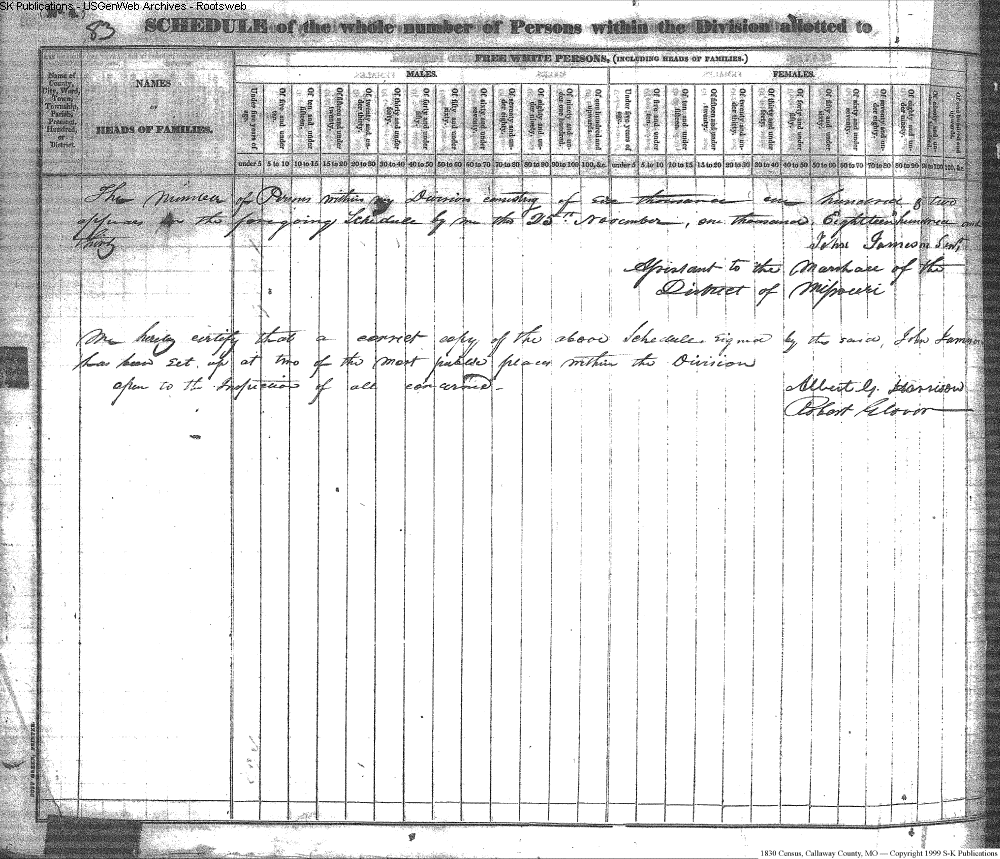 SK Publications - USGenWeb Archives - Rootsweb
83
SCHEDULE of the whole number of Persons within the Division allotted to
FREE WHITE PERSONS, (INCLUDING HEADS OF FAMILIES.)
MALES. FEMALES.
Name of County, City, Ward, Town, Township, Parish, Precinct, Hundred, or District.
NAMES
OF
HEADS OF FAMILIES.
Under five years of age. Of five and under ten. Of ten and under fifteen. Of fifteen and under twenty. Of twenty and under thirty. Of thirty and under forty. Of forty and under fifty. Of fifty and under sixty. Of sixty and under seventy. Of seventy and under eighty. Of eighty and under ninety. Of ninety and under one hundred. Of one hundred and upwards. Under five years of age. Of five and under ten. Of ten and under fifteen. Of fifteen and under twenty. Of twenty and under thirty. Of thirty and under forty. Of forty and under fifty. Of fifty and under sixty. Of sixty and under seventy. Of seventy and under eighty. Of eighty and under ninety.
under 5 5 to 10 10 to 15 15 to 20 20 to 30 30 to 40 40 to 50 50 to 60 60 to 70 70 to 80 80 to 90 90 to 100 100, &c. under 5 5 to 10 10 to 15 15 to 20 20 to 30 30 to 40 40 to 50 50 to 60 60 to 70 70 to 80 80 to 90 90 to 100 100, &c.
The number of Persons within my Division consisting of six thousand one hundred & two
appears in the foregoing Schedule by me this 25th November, one thousand Eighteen hundred and
thirty
John Jameson Senr
Assistant to the Marshall of the
District of Missouri
We hereby certify that a correct copy of the above Schedule signed by the said, John Jameson
has been set up at two of the most public places within the Division
open to the Inspection of all concerned -
Albert G. Harrison
Robert Glover
1830 Census, Callaway County, MO — Copyright 1999 S-K Publications